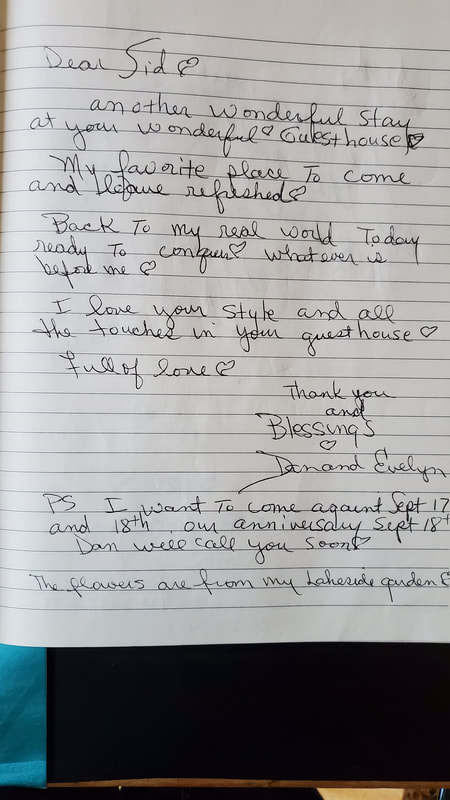 Dear Sid ♡
another wonderful stay
at your wonderful ♡ Guesthouse ♡
My favorite place To come
and become refreshed ♡
Back To my real world Today
ready To conquer ♡ whatever is
before me ♡
I love your style and all
the touches in your guesthouse ♡
Full of love ♡
Thank you
and
Blessings
♡
Dan and Evelyn
PS I want To come again Sept 17
and 18th our anniversary Sept 18th
Dan will call you soon ♡
The flowers are from my Lakeside garden ♡